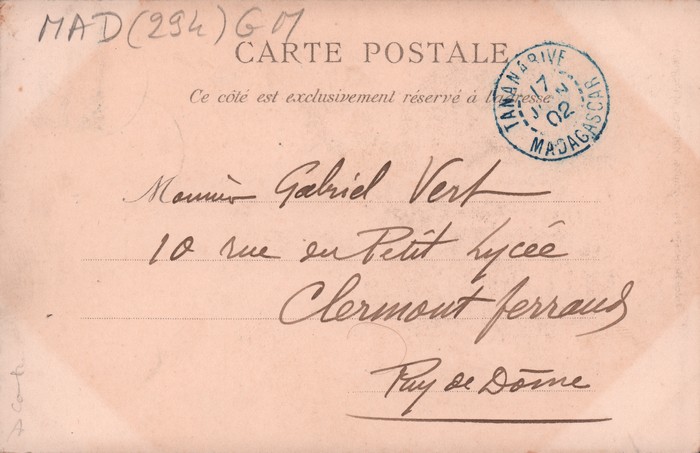 MAD (294) GM
CARTE POSTALE
Ce côté est exclusivement réservé à l'adresse
TANANARIVE
17
02
MADAGASCAR
Monsieur Gabriel Vert
10 rue du Petit Lycée
Clermont ferrand
Puy de Dôme